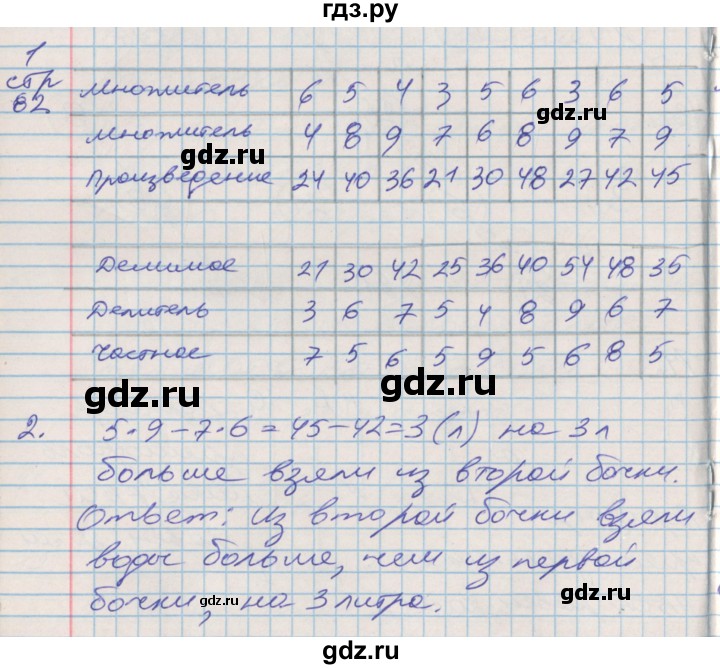 гдз.ру
1
стр
62
множитель 6 5 4 3 5 6 3 6 5
gdz.ru
множитель 4 8 9 7 6 8 9 7 9
gdz.ru
gdz.ru
произведение 24 40 36 21 30 48 27 42 45
gdz.ru
Делимое 21 30 42 25 36 40 54 48 35
gdz.ru
Делитель 3 6 7 5 4 8 9 6 7
Частное 7 5 6 5 9 5 6 8 5
gdz.ru
gdz.ru
2. 5·9-7·6=45-42=3(л) на 3л
больше взяли из второй бочки.
gdz.ru
Ответ: из второй бочки взяли
gdz.ru
воды больше, чем из первой
gdz.ru
бочки, на 3 литра.
gdz.ru
gdz.ru